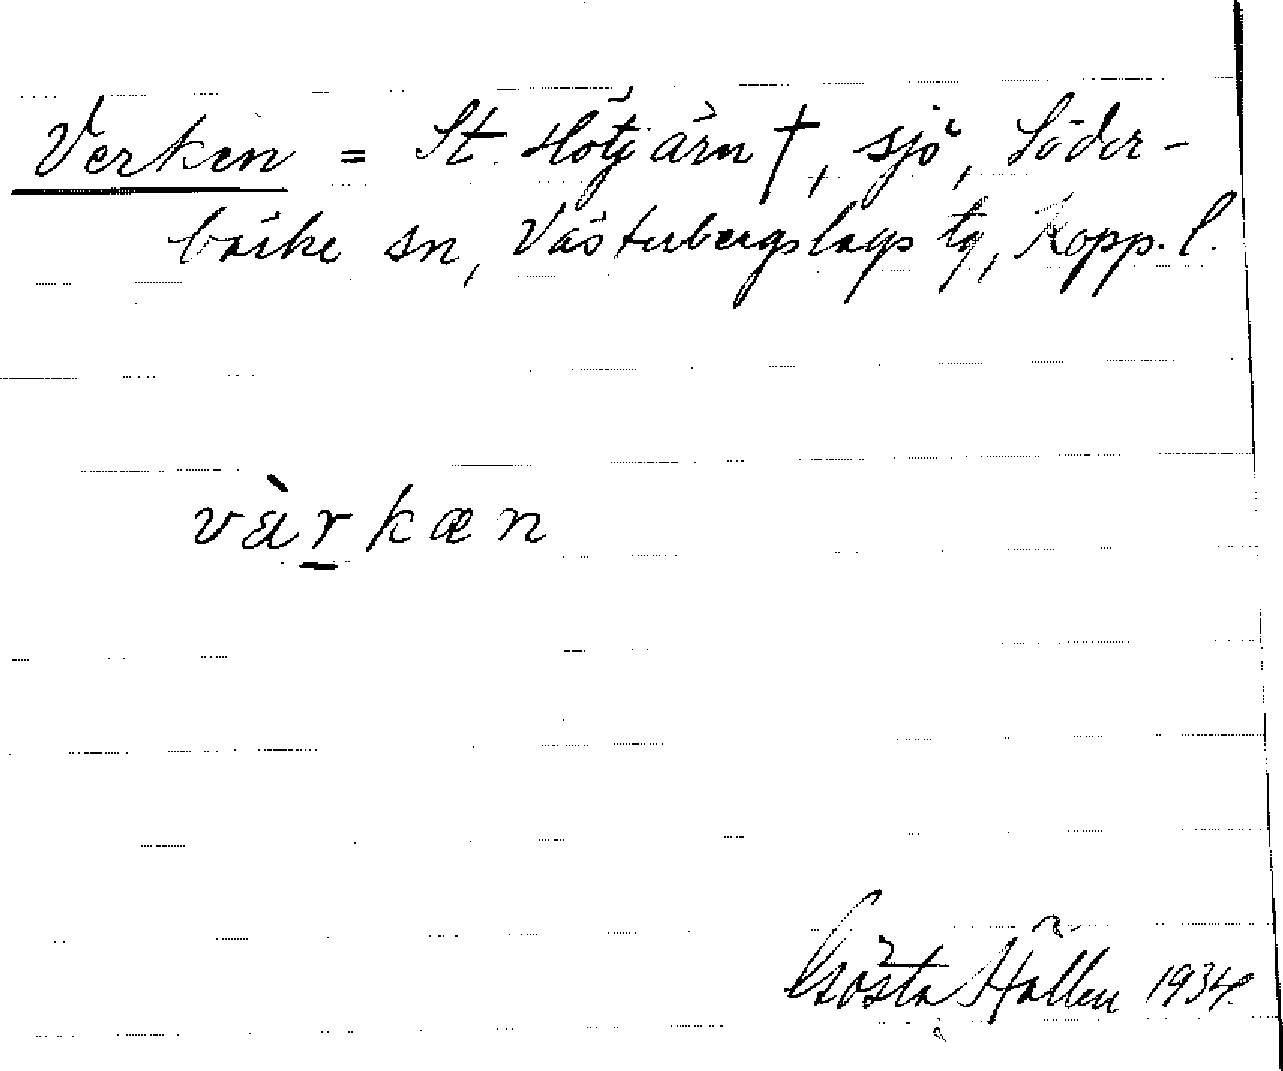 Verken = St. Hötjärn †, sjö, Söder-
bärke sn, Västerbergslags tg, Kopp. l.
vàrkæn
Gösta Hällen 1934.